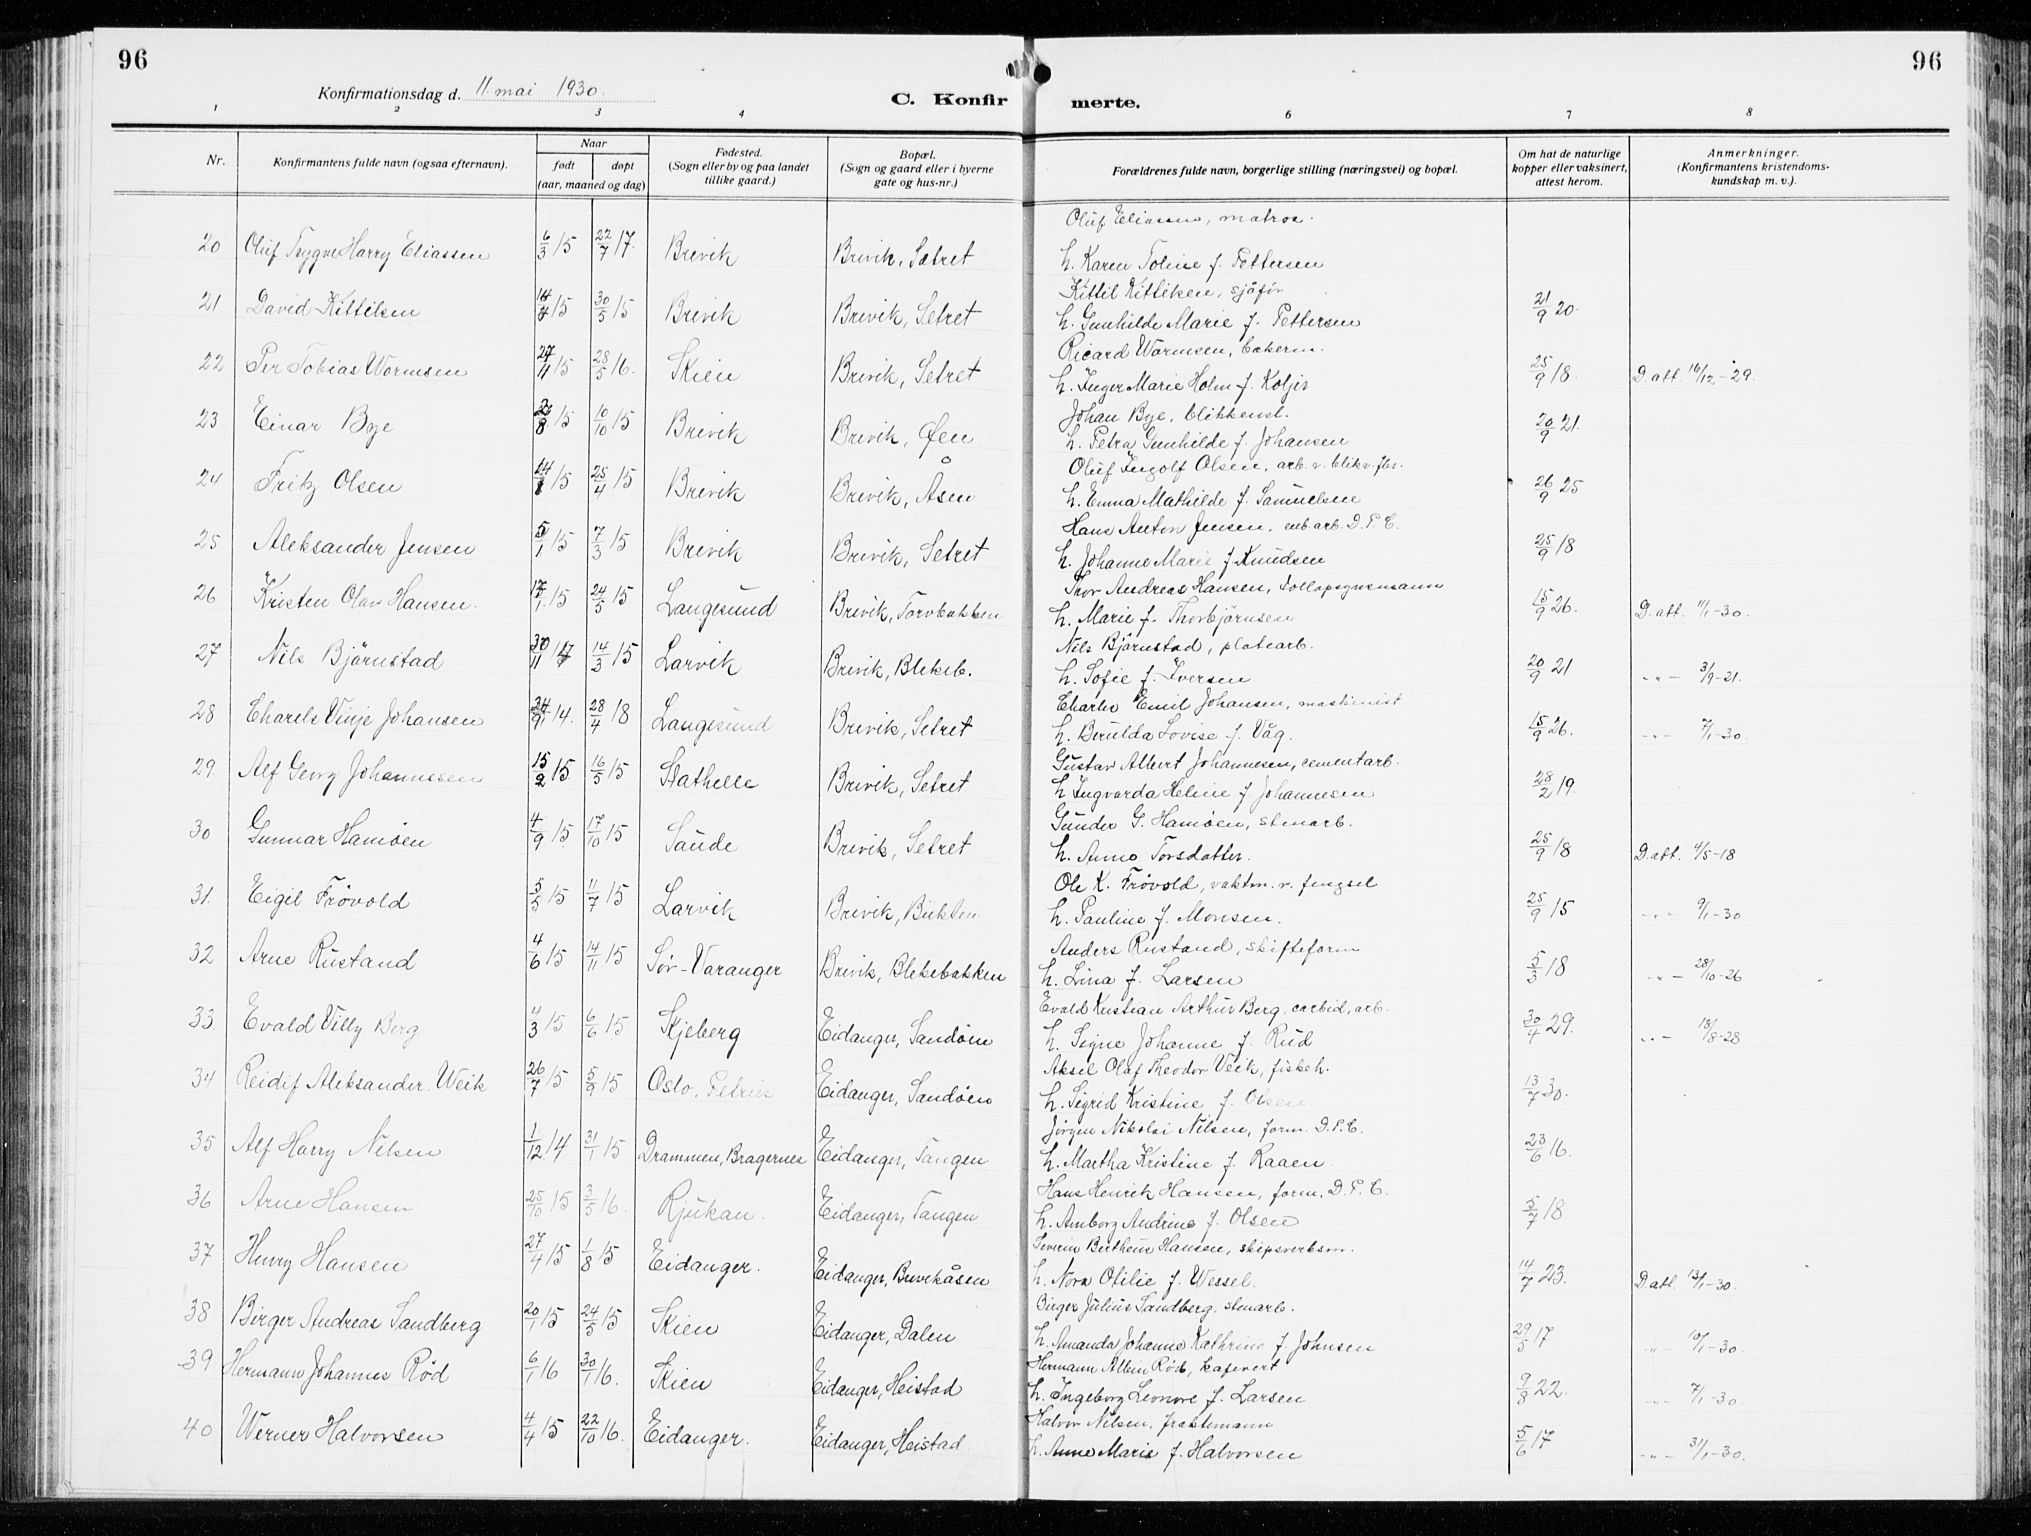 96
96
Konfirmationsdag d. 11. mai 1930.
C. Konfirmerte.
1 2 3 4 6 7 8
Nr. Konfirmantens fulde navn (ogsaa efternavn). Naar født døpt (aar, maaned og dag) Fødested. (Sogn eller by og paa landet tillike gaard.) Bopæl. (Sogn og gaard eller i byerne gate og hus-nr.) Forældrenes fulde navn, borgerlige stilling (næringsvei) og bopæl. Om hat de naturlige kopper eller vaksinert, attest herom. Anmerkninger. (Konfirmantens kristendoms-kundskap m. v.).
Oluf Eliassen, matros.
20 Oluf Trygve Harry Eliassen 6/3 15 22/7 17. Brevik Brevik, Sætret h. Karen Toline f. Pettersen
Kittil Kittilsen, sjåför
21 David Kittilsen 14/4 15 30/5 15 Brevik Brevik, Setret h. Gunhilde Marie f. Pettersen 21/9 20.
Ricard Wormsen, bakerm.
22 Per Tobias Wormsen 27/11 15 28/5 16. Skien Brevik, Setret h. Inger Marie Holm f. 25/9 18. D. att. 16/12-29.
Johan Bye, blikkensl.
23 Einar Bye 8 15 10/10 15 Brevik Brevik, Øen h. Petra Gunhilde f. Johansen 20/9 21.
Oluf Ingolf Olsen, arb. v. blikv. fbr.
24 Fritz Olsen 14 15 25/4 15 Brevik Brevik, Åsen h. Emma Mathilde f. Samuelsen 26/9 25
Hans Anton Jensen, arb. D. P. C.
25 Aleksander Jensen 5/1 15 7/3 15 Brevik Brevik, Setret h. Johanne Marie f. Knudsen 25/9 18
Thor Andreas Hansen, tollopsynsmann
26 Kristen Olav Hansen. 17/1 15 24/5 15 Langesund Brevik, Torvbakken h. Marie f. Thorbjörnsen 15/9 26. D. att. 11/1-30.
Nils Björnstad, platearb.
27 Nils Björnstad 30/11 14 14/3 15 Larvik Brevik, Blekeb. h. Sofie f. Iversen 20/9 21 -"- 3/9-21.
Charles Emil Johansen, maskinist
28 Charels Vinje Johansen 24 14. 28/4 18 Langesund Brevik, Setret h. Berulda Lovise f. Våg. 15/9 26. -"- 7/1-30.
Gustav Albert Johannesen, cementarb.
29 Alf Georg Johannesen 15/2 15 16/5 15 Stathelle Brevik, Setret h. Ingvarda Heline f. Johannesen 28/2 19.
Gunder G. Hamöen, stenarb.
30 Gunnar Hamöen 4/9 15 17/10 15 Saude Brevik, Setret h. Anne Torsdatter. 25/9 18 D. att. 4/5-18
Ole K. Frövold, vaktm. v. fengsel
31. Eigil Frövold 5/5 15 11/7 15 Larvik Brevik, Bukten h. Pauline f. Monsen. 25/9 15 -"- 9/1-30
Anders Rustand, skifteform
32 Arne Rustand 4/6 15 14/11 15 Sör-Varanger Brevik, Blekebakken h. Lina f. Larsen 5/3 18 -"- 28/10-26
Evald Kristian Arthur Berg, carbid, arb.
33 Evald Villy Berg 4/3 15 6/6 15 Skjeberg Eidanger, Sandöen h. Signe Johanne f. Rud 30/4 29. -"- 18/8-28
Aksel Olaf Theodor Veik, fiskeh.
34 Reidif Aleksander Weik 26/7 15 5/9 15 Oslo, Petrus Eidanger, Sandöen h. Sigrid Kristine f. Olsen 13/7 30.
Jörgen Nikolai Nilsen, form. D. P. C.
35 Alf Harry Nilsen 1/12 14 31/1 15 Drammen, Bragernes Eidanger, Tangen h. Martha Kristine f. Raaen. 23/6 16.
Hans Henrik Hansen, form. D. P. C.
36 Arne Hansen 25/10 15 3/5 16. Rjukan. Eidanger, Tangen h. Amborg Andrine f. Olsen 5/7 18
Severin Hansen, skipsverksm.
37 Henry Hansen 27/4 15 1/8 15 Eidanger. Eidanger, Buvikåsen h. Nora Otilie f. Wessel. 14/7 23. D. att. 13/1-30.
Birger Julius Sandberg, stenarb.
38 Birger Andreas Sandberg 20/1 15 24/5 15 Skien Eidanger, Dalen h. Amanda Johanne Kathrine f. Johnsen 29/5 17 -"- 10/1-30.
Hermann Albin Röd, kafevert
39 Hermann Johannes Röd 6/1 16 30/1 16. Skien Eidanger, Heistad h. Ingeborg Leonore f. Larsen 9/8 22. -"- 7/1-30.
Halvor Nilsen, fraktemann
40 Werner Halvorsen 4/4 15 22/10 16. Eidanger. Eidanger, Heistad h. Anne Marie f. Halvorsen 5/6 17 -"- 31/1-30.